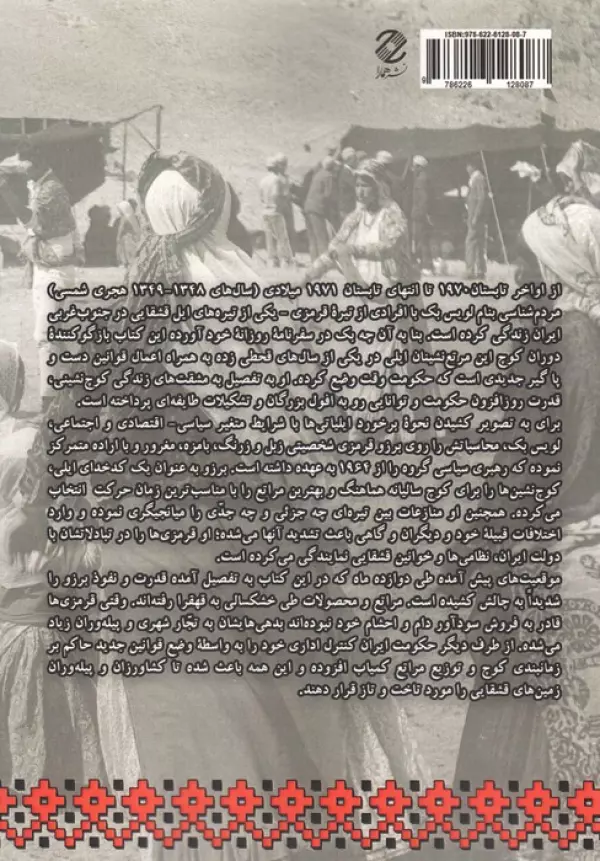 ISBN:978-622-6128-08-7
9 786226 128087
نشر همارا
از اواخر تابستان ۱۹۷۰ تا انتهای تابستان ۱۹۷۱ میلادی (سال‌های ۱۳۴۸-۱۳۴۹ هجری شمسی)
مردم‌شناسی بنام لویس بک با افرادی از تیرهٔ قرمزی - یکی از تیره‌های ایل قشقایی در جنوب‌غربی
ایران زندگی کرده است. بنا به آن چه بک در سفرنامهٔ روزانهٔ خود آورده این کتاب بازگوکنندهٔ
دوران کوچ این مرتع‌نشینان ایلی در یکی از سال‌های قحطی زده به همراه اعمال قوانین دست و
پا گیر جدیدی است که حکومت وقت وضع کرده. او به تفصیل به مشقت‌های زندگی کوچ‌نشینی،
قدرت روزافزون حکومت و توانایی رو به افول بزرگان و تشکیلات طایفه‌ای پرداخته است.
برای به تصویر کشیدن نحوهٔ برخورد ایلیاتی‌ها با شرایط متغیر سیاسی- اقتصادی و اجتماعی،
لویس بک، محاسباتش را روی برزو قرمزی شخصیتی زبل و زرنگ، بامزه، مغرور و با اراده متمرکز
نموده که رهبری سیاسی گروه را از ۱۹۶۲ به عهده داشته است. برزو به عنوان یک کدخدای ایلی،
کوچ‌نشین‌ها را برای کوچ سالیانه هماهنگ و بهترین مراتع را با مناسب‌ترین زمان حرکت انتخاب
می‌کرده. همچنین او منازعات بین تیره‌ای چه جزئی و چه جدّی را میانجیگری نموده و وارد
اختلافات قبیلهٔ خود و دیگران و گاهی باعث تشدید آنها می‌شده؛ او قرمزی‌ها را در تبادلاتشان با
دولت ایران، نظامی‌ها و خوانین قشقایی نمایندگی می‌کرده است.
موقعیت‌های پیش آمده طی دوازده ماه که در این کتاب به تفصیل آمده قدرت و نفوذ برزو را
شدیداً به چالش کشیده است. مراتع و محصولات طی خشکسالی به قهقرا رفته‌اند. وقتی قرمزی‌ها
قادر به فروش سودآور دام و احشام خود نبوده‌اند بدهی‌هایشان به تجّار شهری و پیله‌وران زیاد
می‌شده. از طرف دیگر حکومت ایران کنترل اداری خود را به واسطهٔ وضع قوانین جدید حاکم بر
زمانبندی کوچ و توزیع مراتع کمیاب افزوده و این همه باعث شده تا کشاورزان و پیله‌وران
زمین‌های قشقایی را مورد تاخت و تاز قرار دهند.